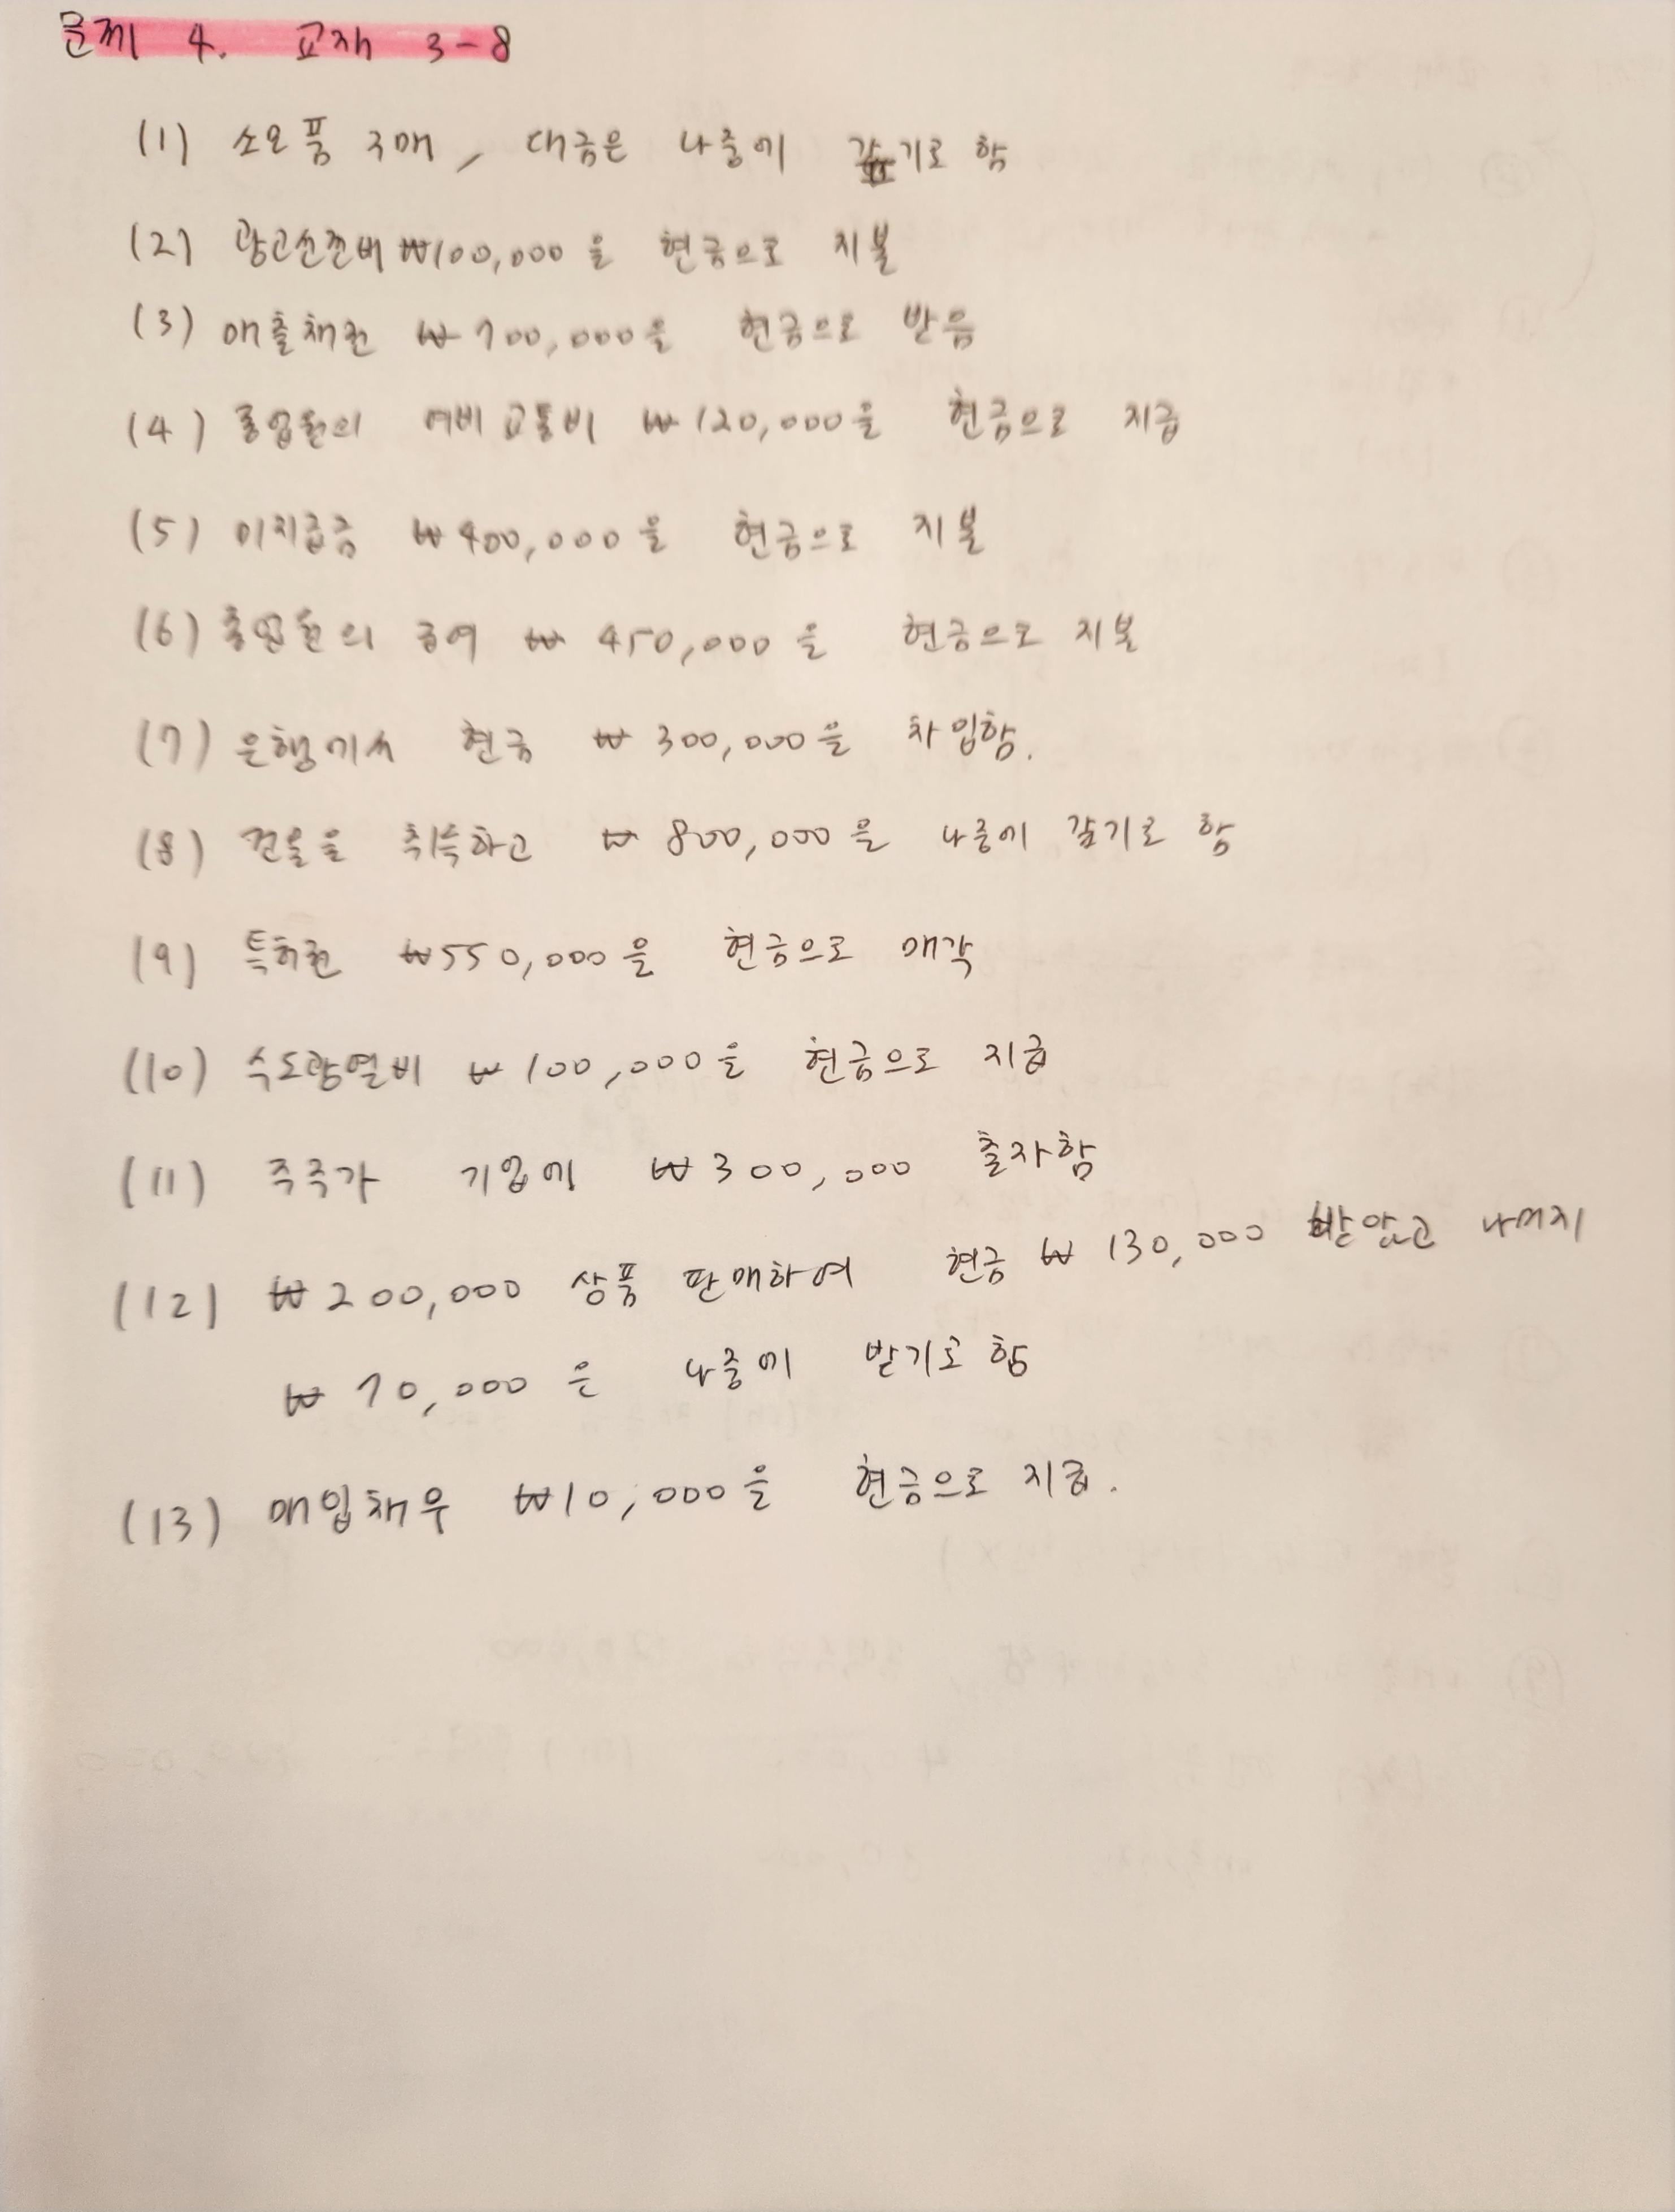 문제 4. 교재 3-8
(1) 소모품 구매, 대금은 나중에 갚기로 함
(2) 광고선전비 ₩100,000을 현금으로 지불
(3) 매출채권 ₩700,000을 현금으로 받음
(4) 종업원의 여비교통비 ₩120,000을 현금으로 지급
(5) 미지급금 ₩400,000을 현금으로 지불
(6) 종업원의 급여 ₩450,000을 현금으로 지불
(7) 은행에서 현금 ₩300,000을 차입함.
(8) 건물을 취득하고 ₩800,000을 나중에 갚기로 함
(9) 특허권 ₩550,000을 현금으로 매각
(10) 수도광열비 ₩100,000을 현금으로 지급
(11) 주주가 기업에 ₩300,000 출자함
(12) ₩200,000 상품 판매하여 현금 ₩130,000 받았고 나머지
₩70,000은 나중에 받기로 함
(13) 매입채무 ₩10,000을 현금으로 지급.